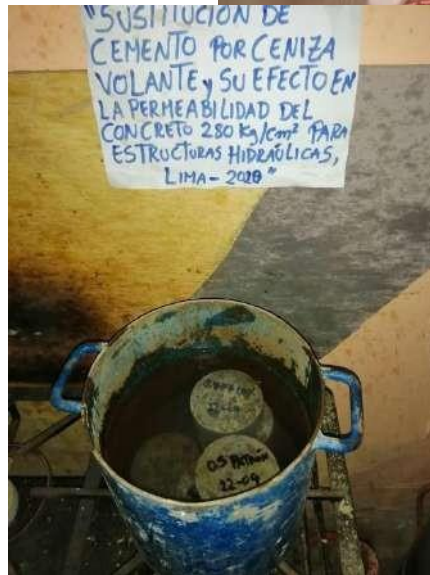 "SUSTITUCIÓN DE
CEMENTO POR CENIZA
VOLANTE y SU EFECTO EN
LA PERMEABILIDAD DEL
CONCRETO 280 Kg/cm² PARA
ESTRUCTURAS HIDRAÚLICAS,
LIMA-2020"
05 PATRÓN
22-09